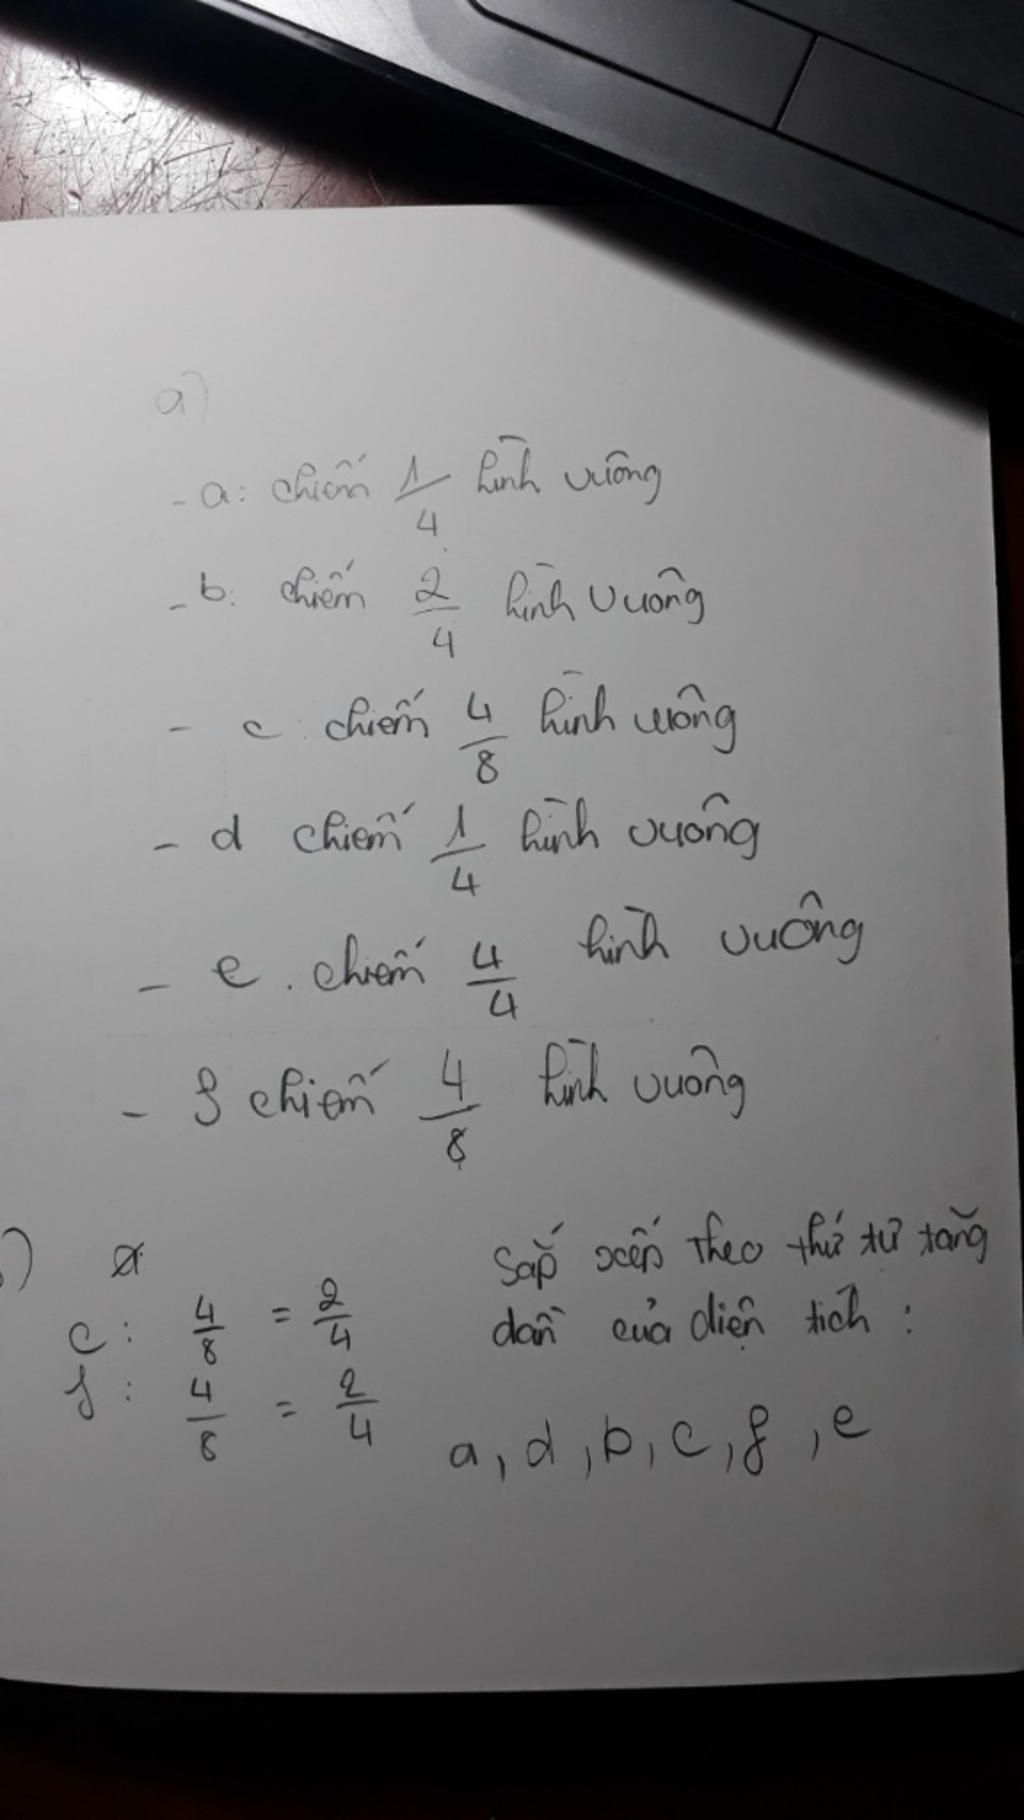 a)
- a: chiếm 1/4 hình vuông
- b: chiếm 2/4 hình vuông
- c: chiếm 4/8 hình vuông
- d chiếm 1/4 hình vuông
- e. chiếm 4/4 hình vuông
- f chiếm 4/8 hình vuông
b)
c: 4/8 = 2/4
f: 4/8 = 2/4
Sắp xếp theo thứ tự tăng
dần của diện tích :
a, d, b, c, f, e